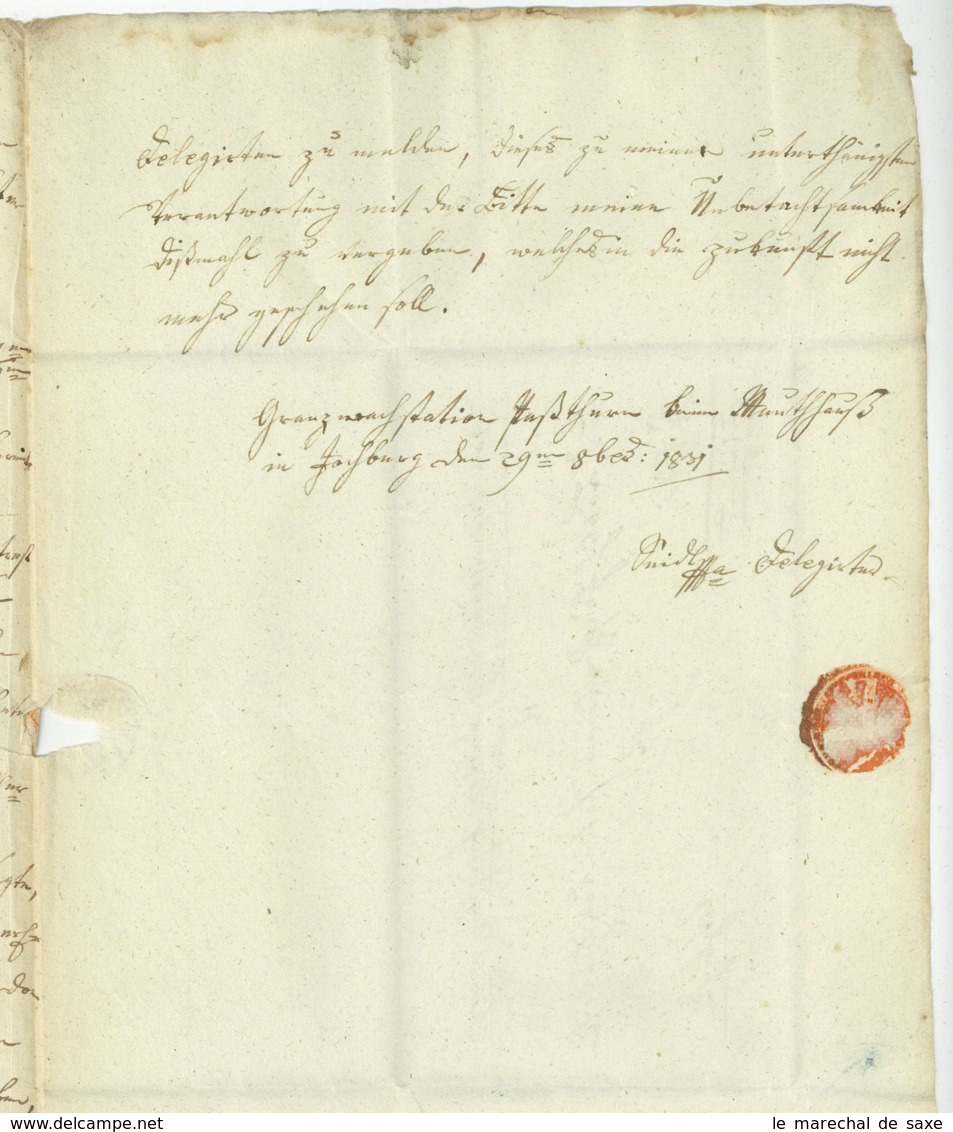 Delegirten zu melden, dieses zu meiner unterthänigsten
Verantwortung mit der Bitte meine Unbetachtsamkeit
dißmahl zu vergeben, welches in die zukunft nicht
mehr geschehen soll.
Granzwachstation Paßthurn beim Mauthhauß
in Jochberg den 29ten 8ber: 1831
Seidl Delegirter
www.delcampe.net
le marechal de saxe